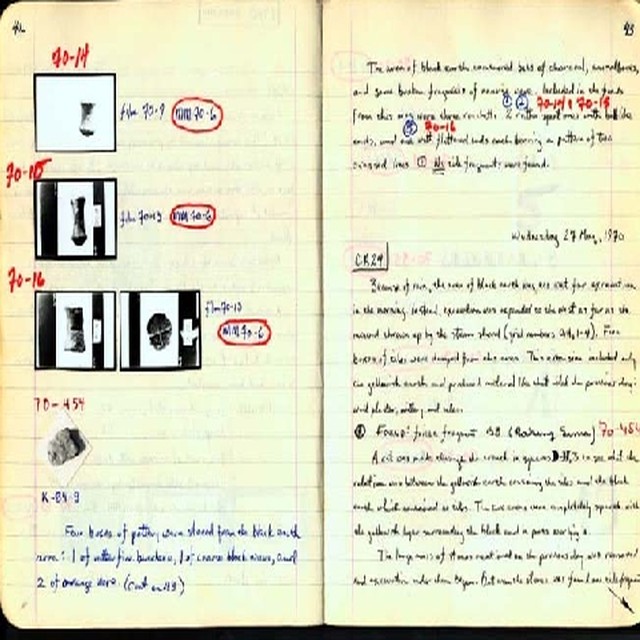 42
70-14
film 70-9 MM 70-6
70-15
film 70-9 MM 70-6
70-16
film 70-13
MM 70-6
70-454
K-89-9
Four boxes of pottery were stored from the black earth
area: 1 of intertine bucchero, 1 of coarse black ware, and
2 of orange ware. (Cont on 43)
43
The area of black earth contained bits of charcoal,
and some broken fragments of ware. Included in the finds
from this area were three rocchetti. ① ② 70-14 & 70-15
③ 70-16
ends, and one with flattened ends each bearing a pattern of two
crossed lines. No tile fragments were found.
Wednesday 27 May, 1970
Because of rain, the area of black earth was not
in the morning. Instead, excavation was expanded to the west as far as the
mound thrown up by the steam shovel (grid numbers
boxes of tiles were dumped from this area. This extension included only
the yellowish earth and produced material like that of the previous day:
and plaster, pottery, and tiles.
① Found: frieze fragment (Running Sima) 70-454
A cut was made through the trench in squares to see what the
relation was between the yellowish earth containing the tiles and the black
earth which contained no tiles. The two areas were completely separate with
the yellowish layer surrounding the black and in parts overlying it.
The large mass of stones mentioned on the previous day was removed
and excavation under them begun. But among the stones was found one